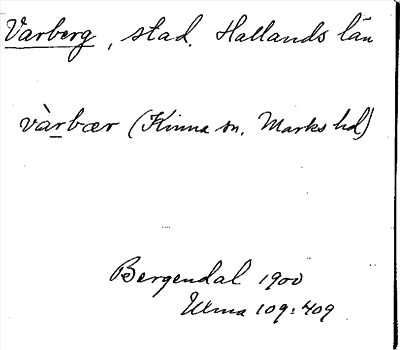 Varberg, stad. Hallands län
vàrbær (Kinna sn, Marks hd)
Bergendal 1900
Ulma 109:409